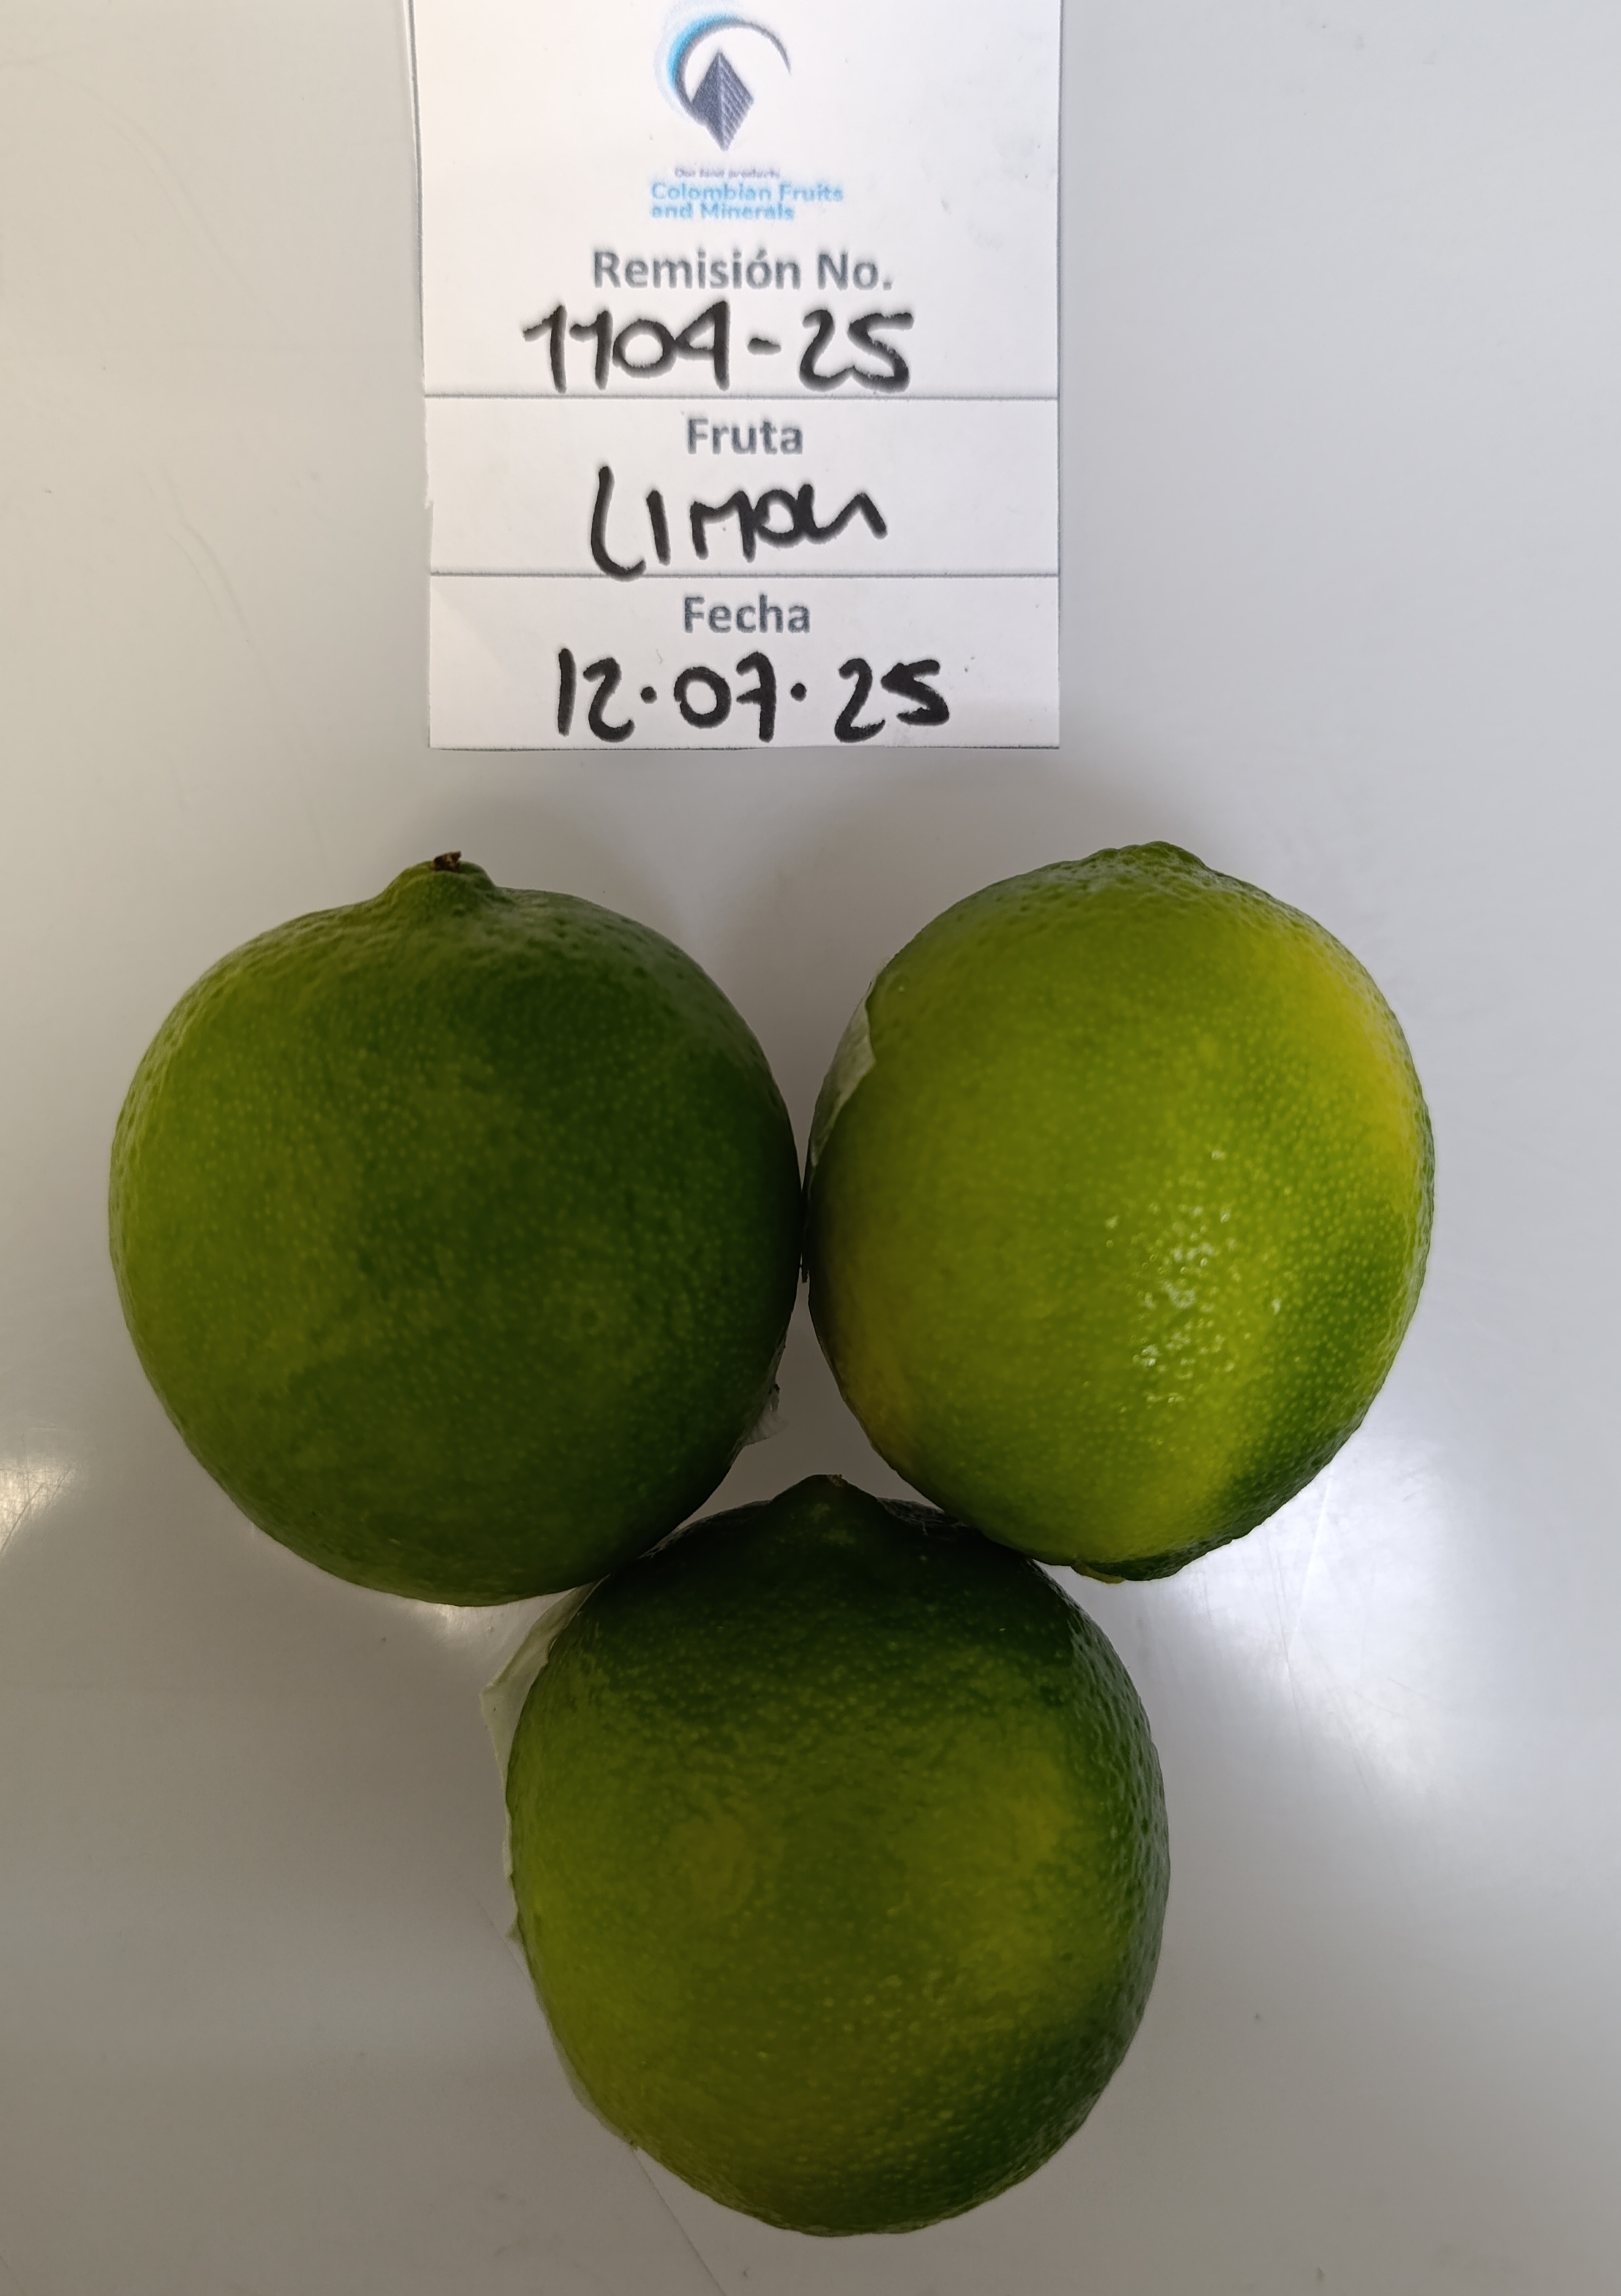 Our land products
Colombian Fruits
and Minerals
Remisión No.
1104-25
Fruta
LIMON
Fecha
12.07.25